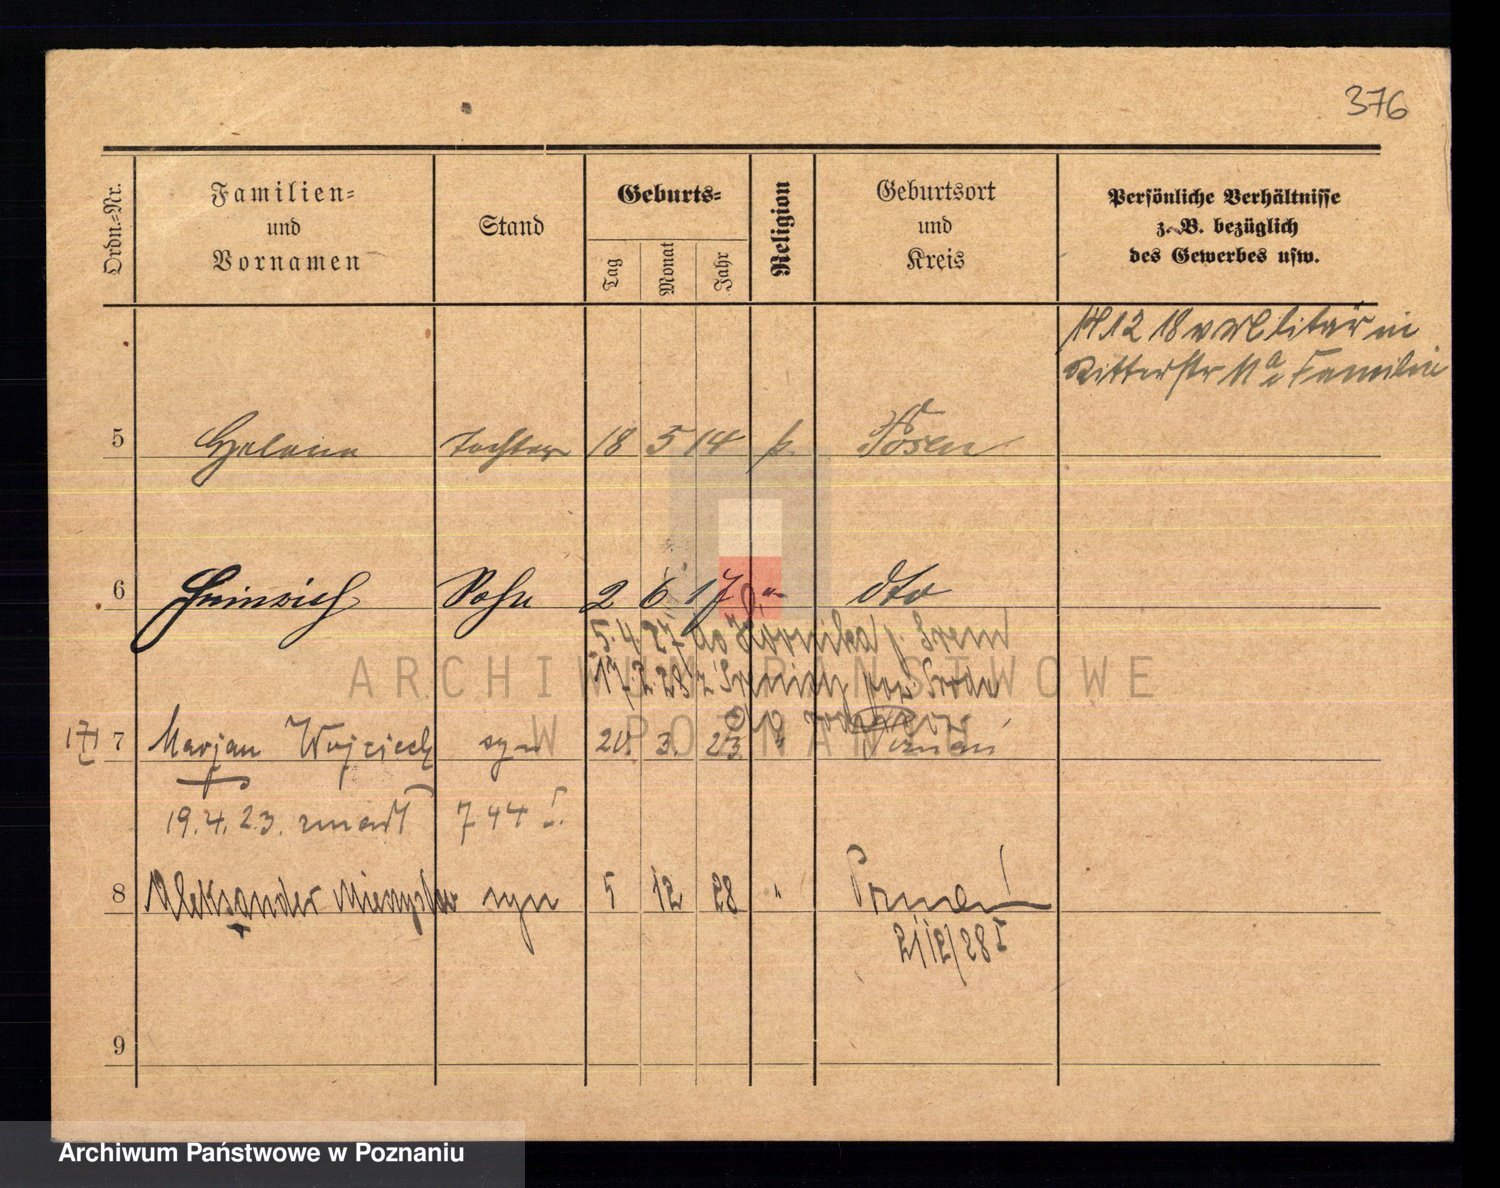 376
Ordn.=Nr.
Familien=
und
Vornamen
Stand
Geburts=
Tag
Monat
Jahr
Religion
Geburtsort
und
Kreis
Persönliche Verhältnisse
z. B. bezüglich
des Gewerbes usw.
12 18 v Militär in
Ritterstr 11a Familie
5 Helena Tochter 18 5 14 k. Posen
6 Heinrich Sohn 2 6 17 " dto
do Kórnika p. Śrem
ARCHIWUM PAŃSTWOWE
W POZNANIU
7 Marjan Wojciech syn 20. 3. 23. " Poznań
19.4.23. zmarł 744
8 Aleksander syn 5 12 28 " Poznań
9
Archiwum Państwowe w Poznaniu